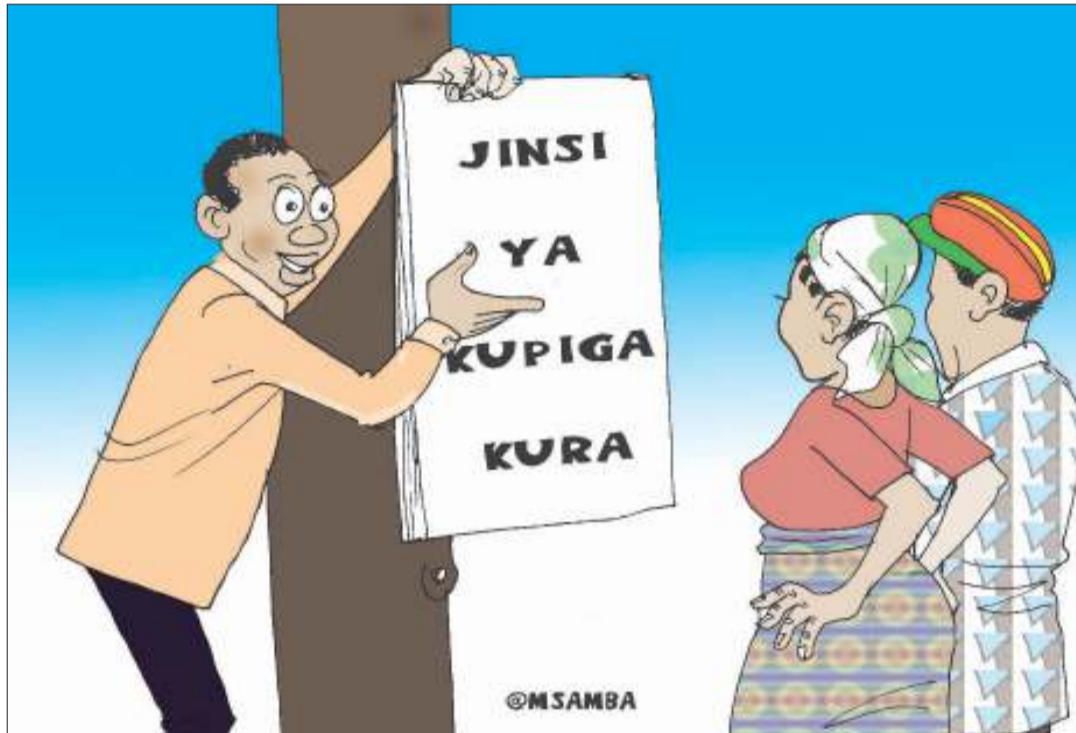 JINSI
YA
KUPIGA
KURA
@MSAMBA